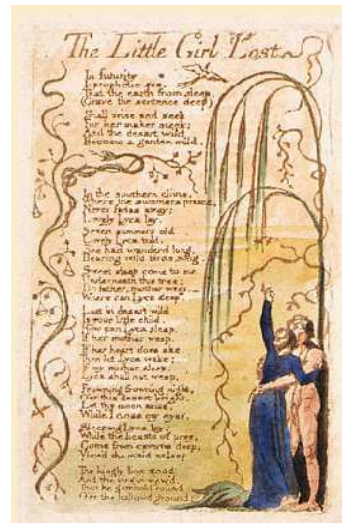 The Little Girl Lost
In futurity
I prophetic see,
That the earth from sleep,
(Grave the sentence deep)
Shall arise and seek
For her maker meek:
And the desart wild
Become a garden mild.
In the southern clime,
Where the summers prime,
Never fades away;
Lovely Lyca lay.
Seven summers old
Lovely Lyca told,
She had wanderd long,
Hearing wild birds song.
Sweet sleep come to me
Underneath this tree;
Do father, mother weep.
Where can Lyca sleep.
Lost in desart wild
Is your little child.
How can Lyca sleep,
If her mother weep.
If her heart does ake,
Then let Lyca wake;
If my mother sleep,
Lyca shall not weep.
Frowning frowning night,
O'er this desart bright,
Let thy moon arise,
While I close my eyes.
Sleeping Lyca lay;
While the beasts of prey,
Come from caverns deep,
View'd the maid asleep
The kingly lion stood
And the virgin view'd,
Then he gambold round
O'er the hallowd ground: